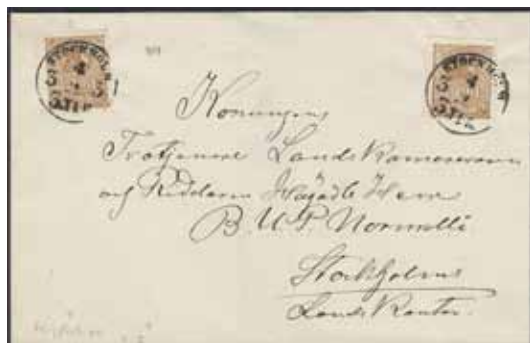 STOCKHOLM
STOCKHOLM
Konungens
Trotjenare Lands Kamereraren
och Riddaren Högädle Herr
B. U. P. Normelli
Stockholms
Lands Kontor.